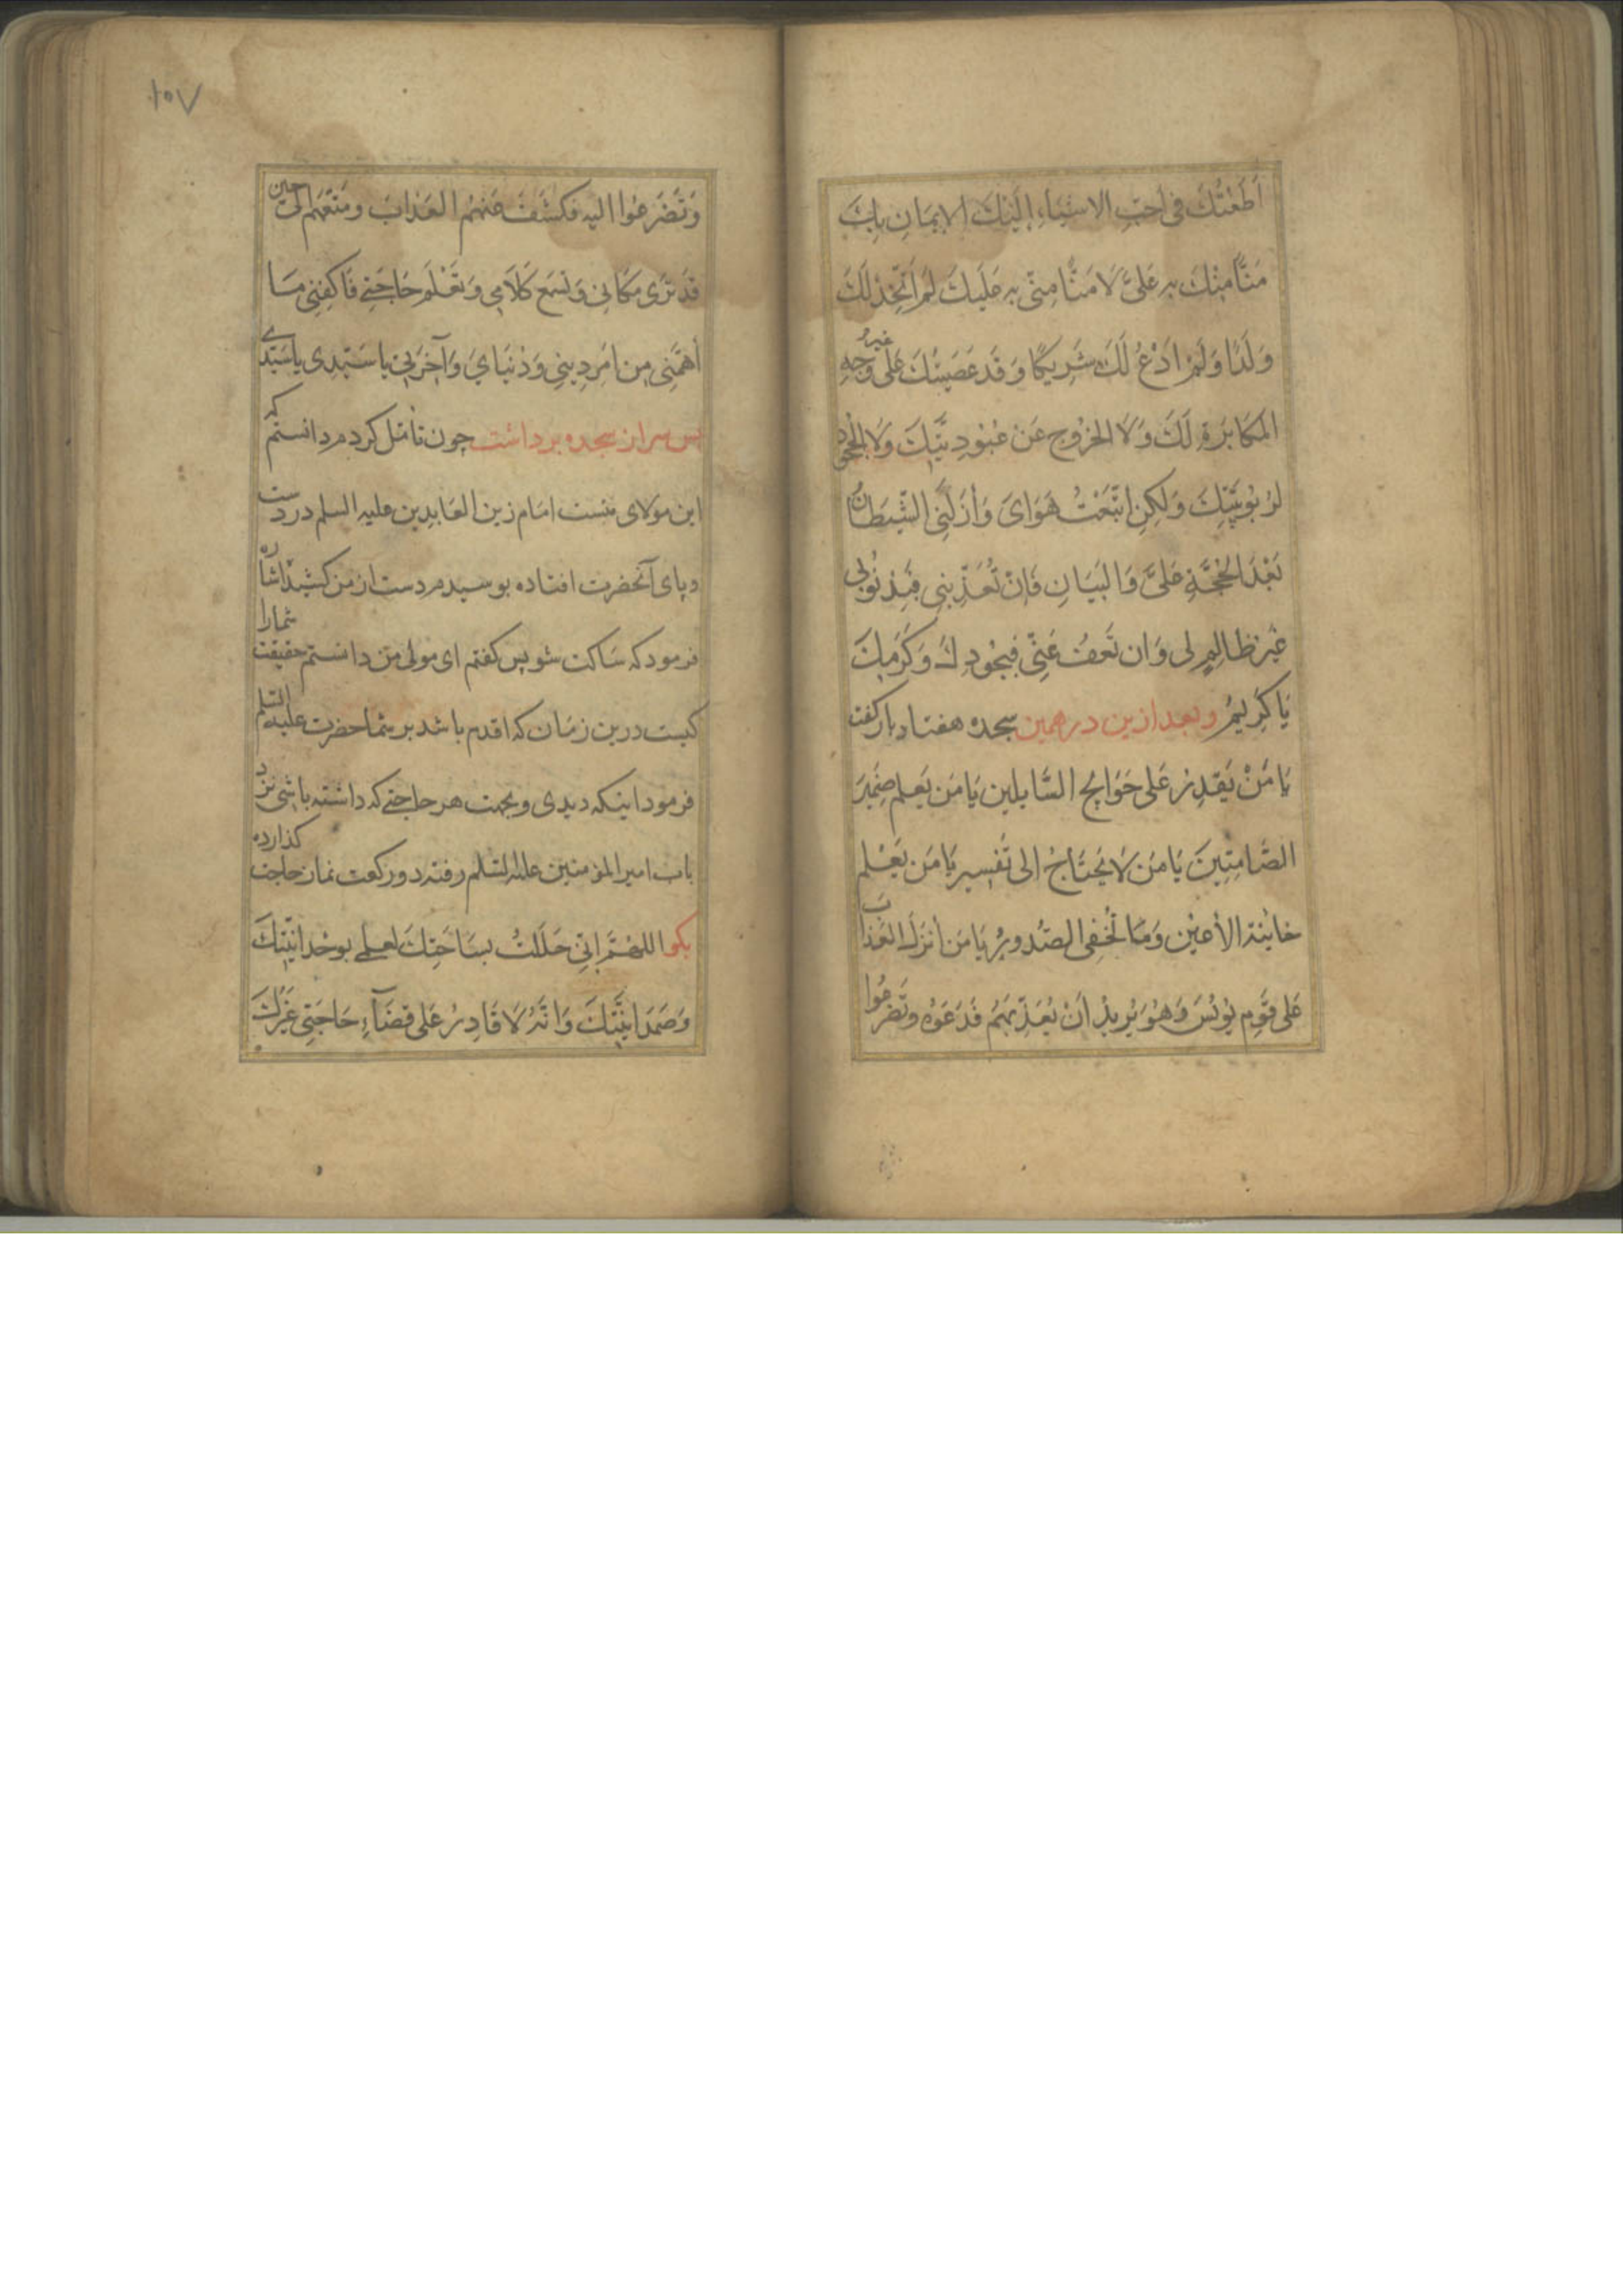 اَطَعْتُكَ فی اَحَبِّ الاشیَاءِ اِلَیْكَ الایمَانِ بِكَ
مَنًّا مِنْكَ بِهِ عَلَیَّ لَا مَنًّا مِنّی بِهِ عَلَیكَ لَمْ اَتَّخِذْ لَكَ
وَلَدًا وَلَمْ ادْعُ لَكَ شَرِیکًا وَقَد عَصَیْتُكَ عَلی غیرِ وَجْهِ
المکَابَرَةِ لَكَ وَلَا الخرُوجِ عَنْ عُبُودِیَّتِكَ وَلَا الجحُودِ
لِرُبُوبِیَّتِكَ وَلٰکِنِ اتَّبَعْتُ هَوَایَ وَاَزَلَّنِی الشَّیطَانُ
بَعْدَ الحُجَّةِ عَلَیَّ وَالبَیَانِ فَاِنْ تُعَذِّبْنِی فَبِذُنُوبی
غَیْرَ ظالِمٍ لی وَان تَعفُ عَنّی فَبِجُودِكَ وَکَرَمِكَ
یَا کَرِیمُ وبعد ازین در همین سجده هفتاد بار کفت
یَا مَنْ یَقدِرُ عَلی حَوَایجِ السَّایلین یَا مَن یَعلم ضَمِیرَ
الصَّامِتِینَ یَا مَن لَا یَحتَاجُ الی تَفسِیر یَا مَن یَعْلم
خاینة الاَعیُن وَمَا تُخفی الصّدورُ یَا مَن اَنزَلَ العَذابَ
عَلی قَومِ یُونُسَ وَهُوَ یُرِیدُ اَنْ یُعَذِّبَهُم فَدَعَوْهُ وتَضَرعُوا
۱۰۷
وَتَضَرعُوا الیه فکَشَفَ عَنهُم العَذابَ ومَتَّعَهُم الی حین
قَد تَرَی مَکَانی وَتَسمَع کَلَامِی وَتَعْلَم حَاجَتِی فَاکفِنِی مَا
اَهَمَّنِی مِن اَمرِ دِینِی وَدُنیَایَ وَآخِرَتِی یا سَیِّدی یا سَیِّدی
پس سر از سجده برداشت چون تأمّل کردم دانستم که
این مولای منست امَام زین العَابدِین علیه السلم در دست
وپای آنحضرت افتاده بوسیدم دست از من کشید اشاره
فرمود که سَاکت شو پس کفتم ای مولی من دانستم حقیقت شمارا
کیست درین زمَان که اقدم باشد بر شما حضرت علیه السّلم
فرمود اینکه دیدی وبجهت هر حاجتی که داشته باشی نزد
باب امیر المؤمنین علیه السّلم رفته دو رکعت نماز حاجت کذارده
بکو اللهُمَّ اِنّی حَلَلتُ بسَاحَتِكَ لعلمی بوحْدانیَّتِكَ
وَصَمَدَانِیَّتِكَ وَانَّهُ لَا قَادِرُ عَلی قضَآءِ حَاجَتِی غَیْرُكَ